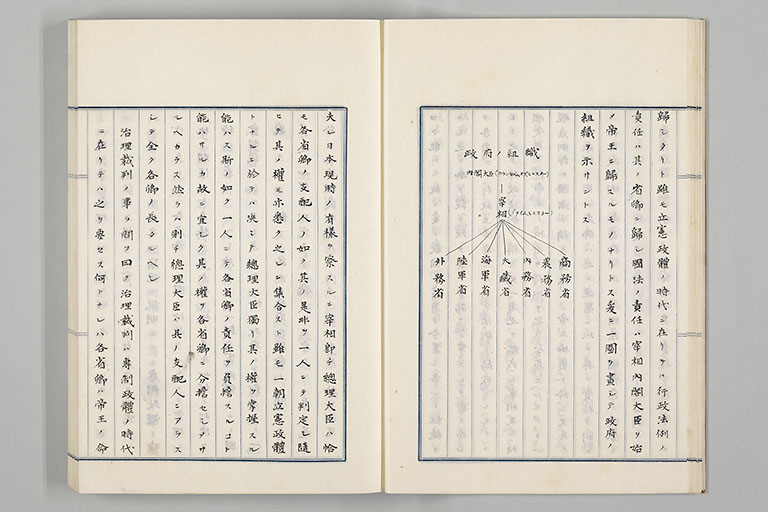 歸シタリト雖モ立憲政體ノ時代ニ在リテハ行政法例ノ
責任ハ其ノ省卿ニ歸シ國法ノ責任ハ宰相內閣大臣ヨリ始
ノ帝王ニ歸スルモノナリトス爰ニ一圖ヲ畫シテ政府ノ
組織ヲ示サントス
政府ノ組織
內閣大臣
宰相
商務省
農務省
內務省
大藏省
海軍省
陸軍省
外務省
夫レ日本現時ノ有樣ヲ察スルニ宰相卽チ總理大臣ハ恰
モ各省卿ノ支配人ノ如ク其ノ是非ヲ一人ニテ判定シ隨
ヒテ其ノ權モ亦悉ク之レニ集合スト雖モ一朝立憲政體
トナルニ於テハ決シテ總理大臣獨リ其ノ權ヲ掌握スル
能ハス斯ノ如ク一人ニテ各省卿ノ責任ヲ負擔スルコト
能ハサルカ故ニ宜シク其ノ權ヲ各省卿ニ分擔セシメサ
ルヘカラス然ラハ則チ總理大臣ハ其ノ支配人ニアラス
シテ全ク各卿ノ長タルヘシ
治理裁判ノ事ヲ問フ曰ク治理裁判ハ專制政體ノ時代
ニ在リテハ之ヲ要セス何トナレハ各省卿ハ帝王ノ命